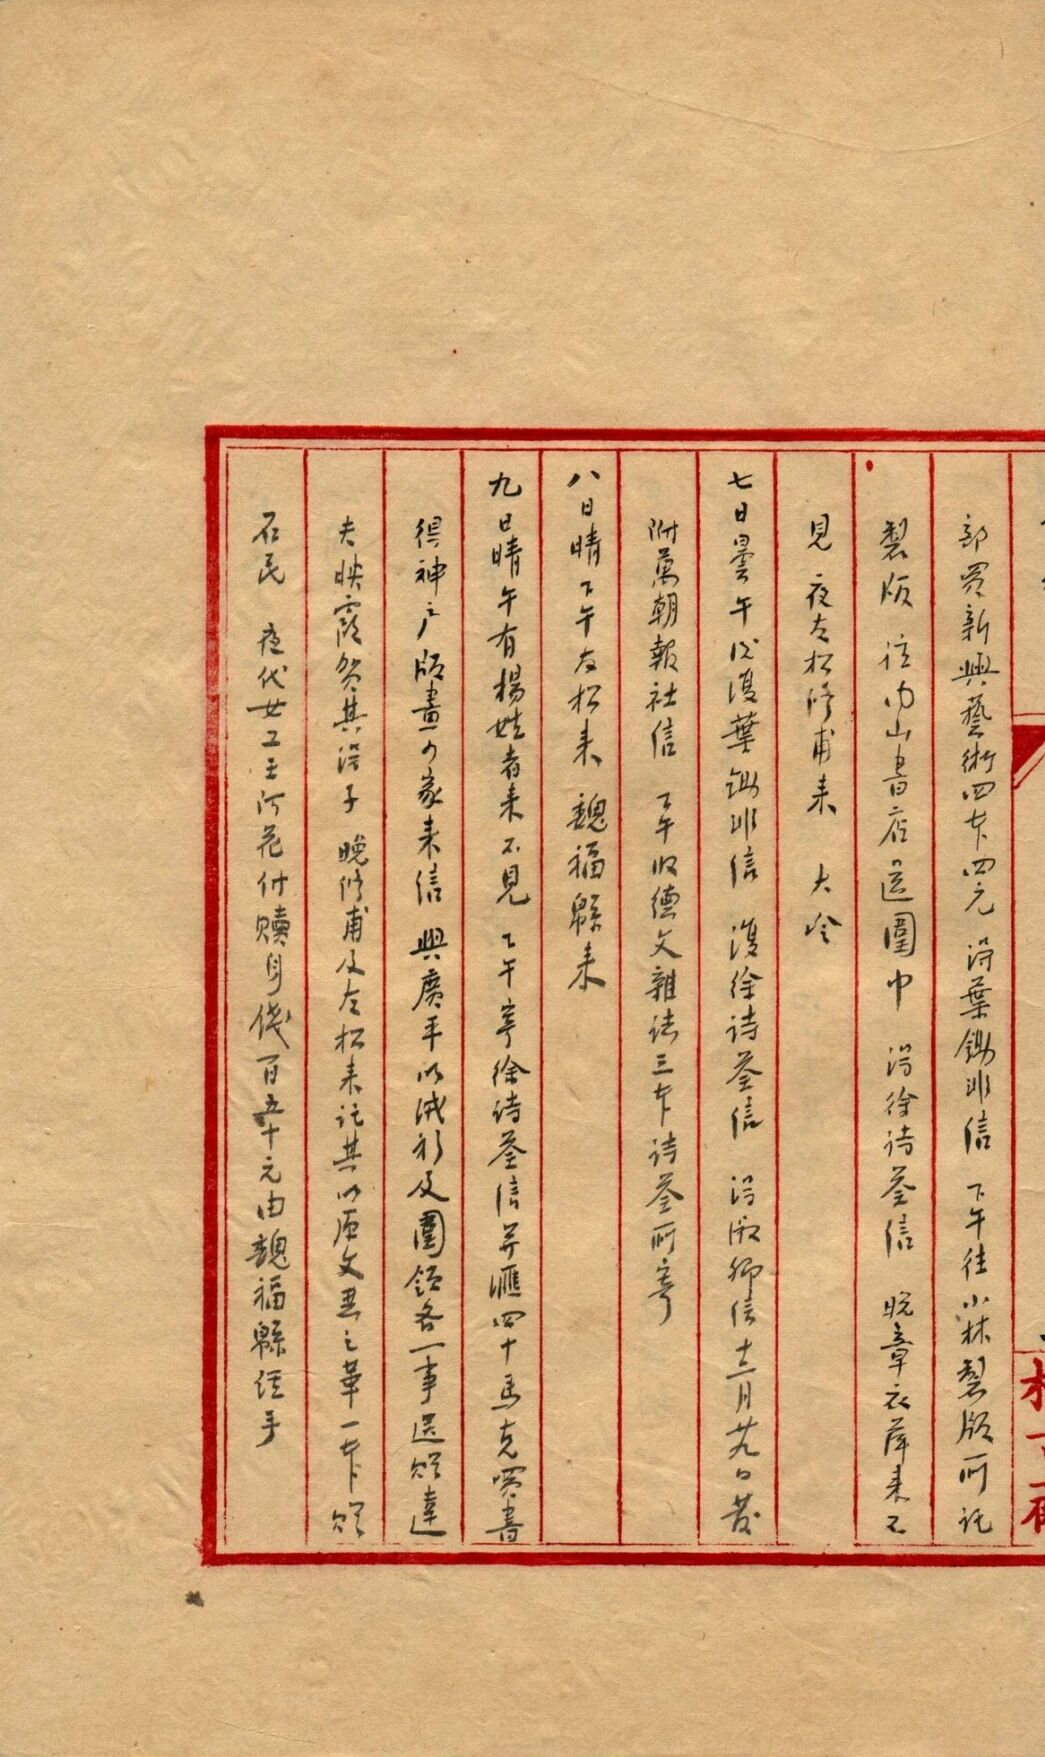 部買新興藝術四本四元 得葉鋤非信 下午往小林製版所託
製版 往內山書店還圍巾 得徐詩荃信 晚章衣萍來不
見 夜友松修甫來 大冷
七日曇午後復葉鋤非信 復徐詩荃信 得淑卿信十二月廿九日發
附萬朝報社信 下午收德文雜誌三本詩荃所寄
八日晴下午友松來 魏福緜來
九日晴午有楊姓者來不見 下午寄徐詩荃信并匯四十馬克買書
得神戶版畫の家來信 與廣平以絨衫及圍領各一事送贈達
夫映霞賀其得子 晚修甫及友松來託其以原文恶之華一本贈
石民 夜代女工王阿花付贖身錢百五十元由魏福緜經手